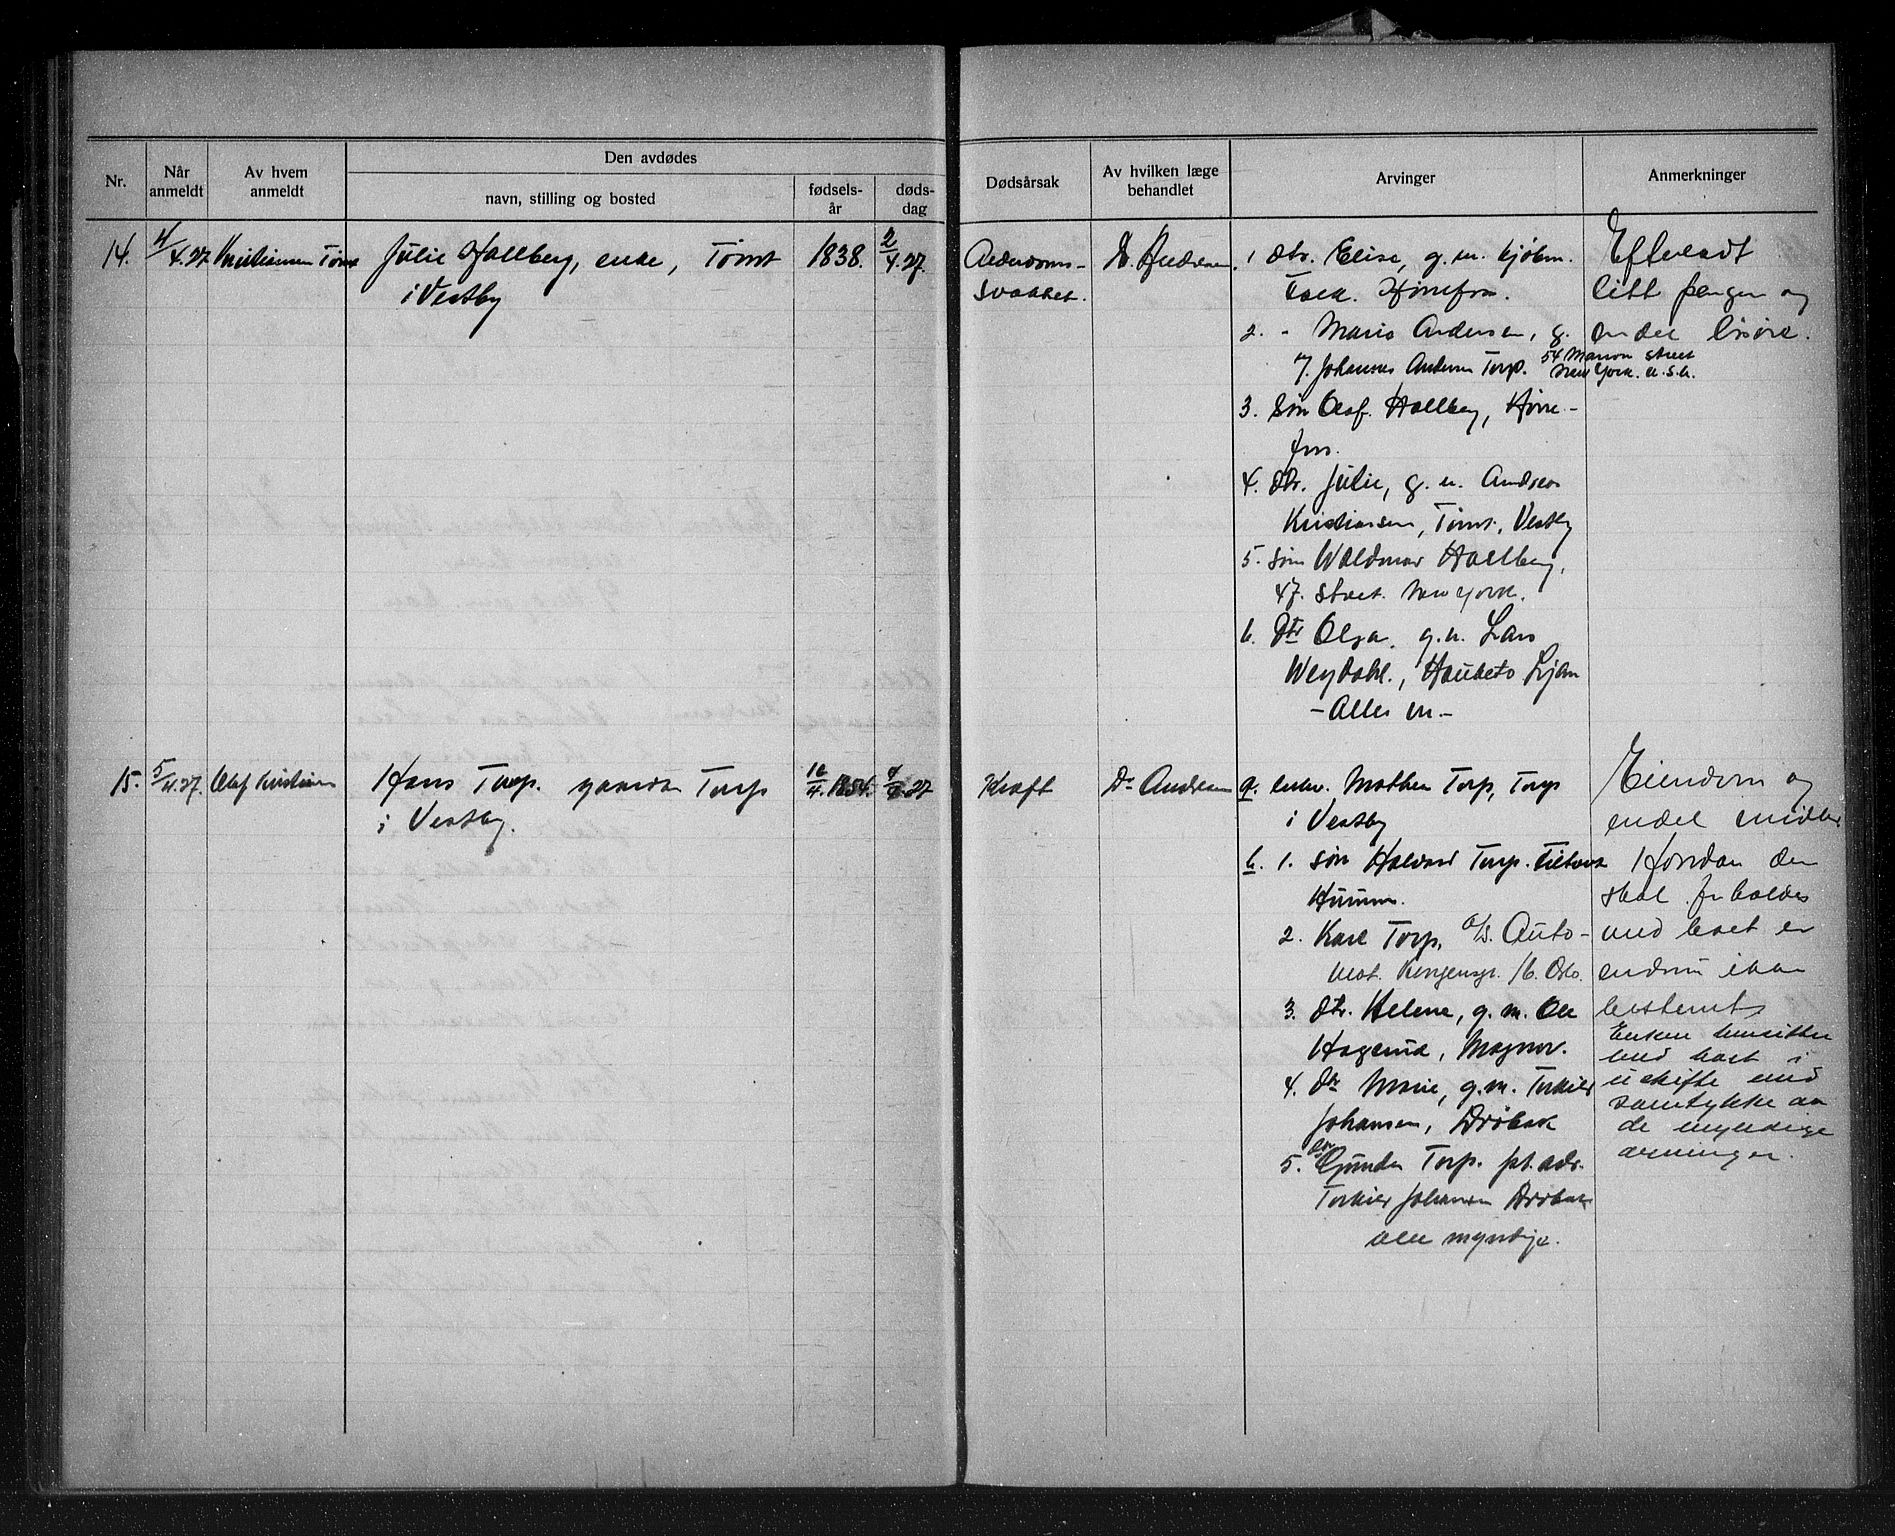 Nr.
Når anmeldt
Av hvem anmeldt
Den avdødes
navn, stilling og bosted
fødsels-år
døds-dag
Dødsårsak
Av hvilken læge behandlet
Arvinger
Anmerkninger
14.
4/4.27
Kristiansen Tømt
Julie Hallberg, enke, Tømt
i Vestby
1838.
2/4.27.
Alderdoms-
svakhet.
Dr. Andresen.
1 dtr. Elise, g. m. kjøbm.
Hønefoss.
2. - Marie Andersen, g.
m. Johannes Andersen Torp. 54 Marion street
New York. U.S.A.
3. Søn Olaf Hallberg, Høne-
foss.
4. dtr. Julie, g. m. Andreas
Kristiansen, Tømt, Vestby
5. søn Waldemar Hallberg,
47. Street. New York.
6. Dtr Olga, g. m. Lars
Weydahl, Hauketo Ljan
- Alle m. -
Efterladt
litt penger og
en del løsøre.
15.
5/4.27.
Olaf Kristiansen
Hans Torp, gaardbr. Torp
i Vestby.
10/4.1854.
4/4 27
Kræft
Dr Andresen
a. enke. Mathea Torp, Torp
i Vestby
b. 1. søn Halvard Torp. Tiltorst
Hurum.
2. Karl Torp, A/S. Auto-
Kongensgt. 16. Oslo.
3. dtr. Helene, g. m. Ole
Hagerud, Magnor.
4. dtr Marie, g. m. Torkild
Johansen, Drøbak
5. dtr Gunda Torp. pt. adr.
Torkild Johansen Drøbak
alle myndige.
Eiendom og
endel midler
Hvordan der
skal forholdes
med boet er
endnu ikke
bestemt.
Enken hensitter
med boet i
uskifte med
samtykke av
de myndige
arvinger.